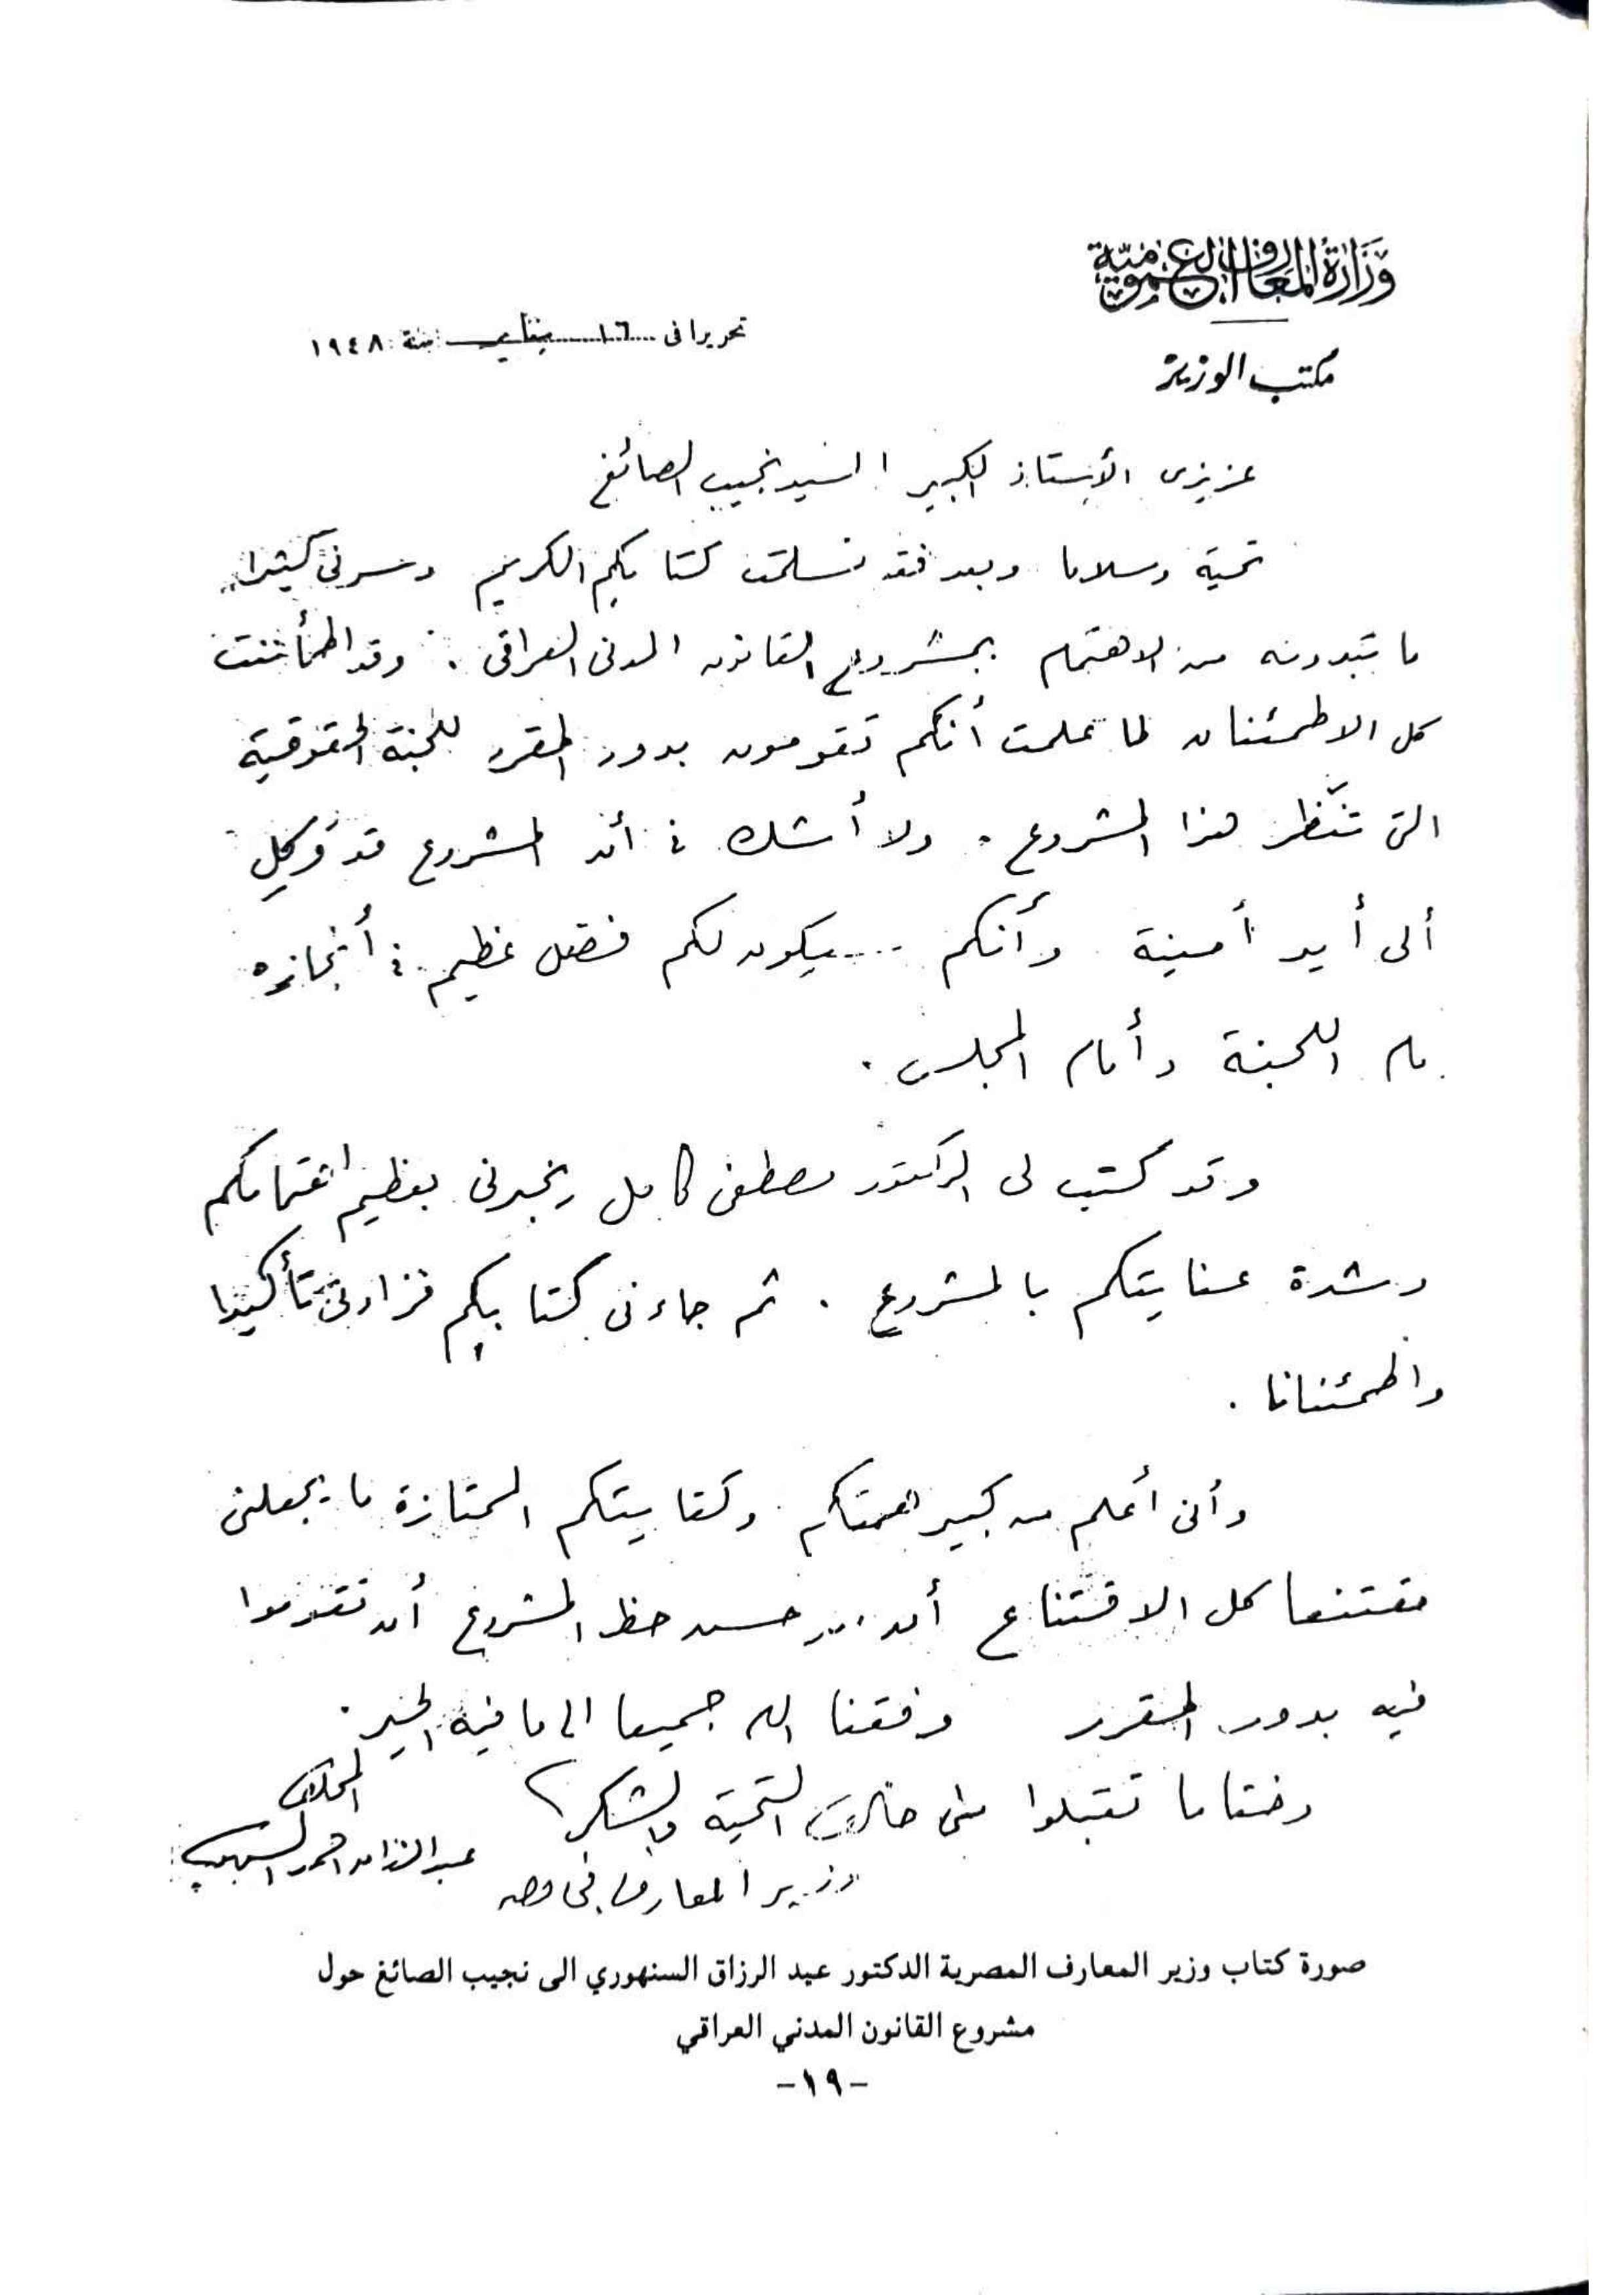 وزارة المعارف العمومية
تحريرا فى ١٦ يناير سنة ١٩٤٨
مكتب الوزير
عزيزى الأستاذ الكبير السيد نجيب الصائغ
تحية وسلاما وبعد فقد تسلمت كتابكم الكريم وسرنى كثيرا
ما تبدونه من الاهتمام بمشروع القانون المدنى العراقى . وقد اطمأننت
كل الاطمئنان لما علمت أنكم تقومون بدور المقرر للجنة الحقوقية
التى تنظر هذا المشروع . ولا أشك فى أن المشروع قد وُكِل
ألى أيد أمينة وأنكم سيكون لكم فضل عظيم فى أنجازه
أمام اللجنة وأمام المجلس .
وقد كتب لى الدكتور مصطفى كامل يخبرنى بعظيم اهتمامكم
وشدة عنايتكم بالمشروع . ثم جاءنى كتابكم فزادنى تأكيدا
واطمئنانا .
وأنى أعلم من كبير همتكم وكفايتكم الممتازة ما يجعلنى
مقتنعا كل الاقتناع أن من حسن حظ المشروع أن تقوموا
فيه بدور المقرر وفقنا الله جميعا الى ما فيه الخير .
وختاما تقبلوا منى خالص التحية والشكر
المخلص
عبد الرزاق احمد السنهورى
وزير المعارف فى مصر
صورة كتاب وزير المعارف المصرية الدكتور عبد الرزاق السنهوري الى نجيب الصائغ حول
مشروع القانون المدني العراقي
-١٩-